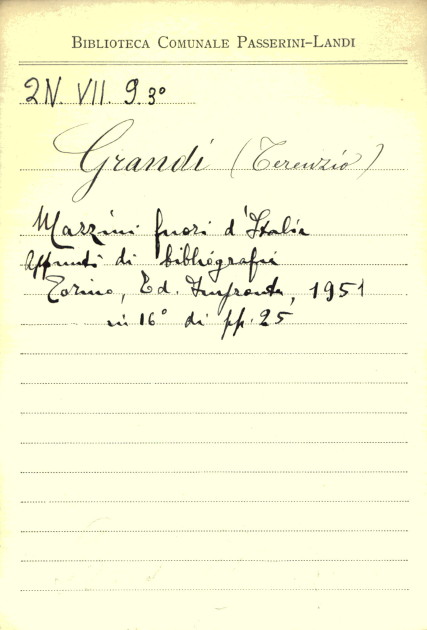 BIBLIOTECA COMUNALE PASSERINI-LANDI
2N. VII. 9. 3º
Grandi (Terenzio)
Mazzini fuori d'Italia
Appunti di bibliografia
Torino, Ed. Impronta, 1951
in 16° di pp. 25